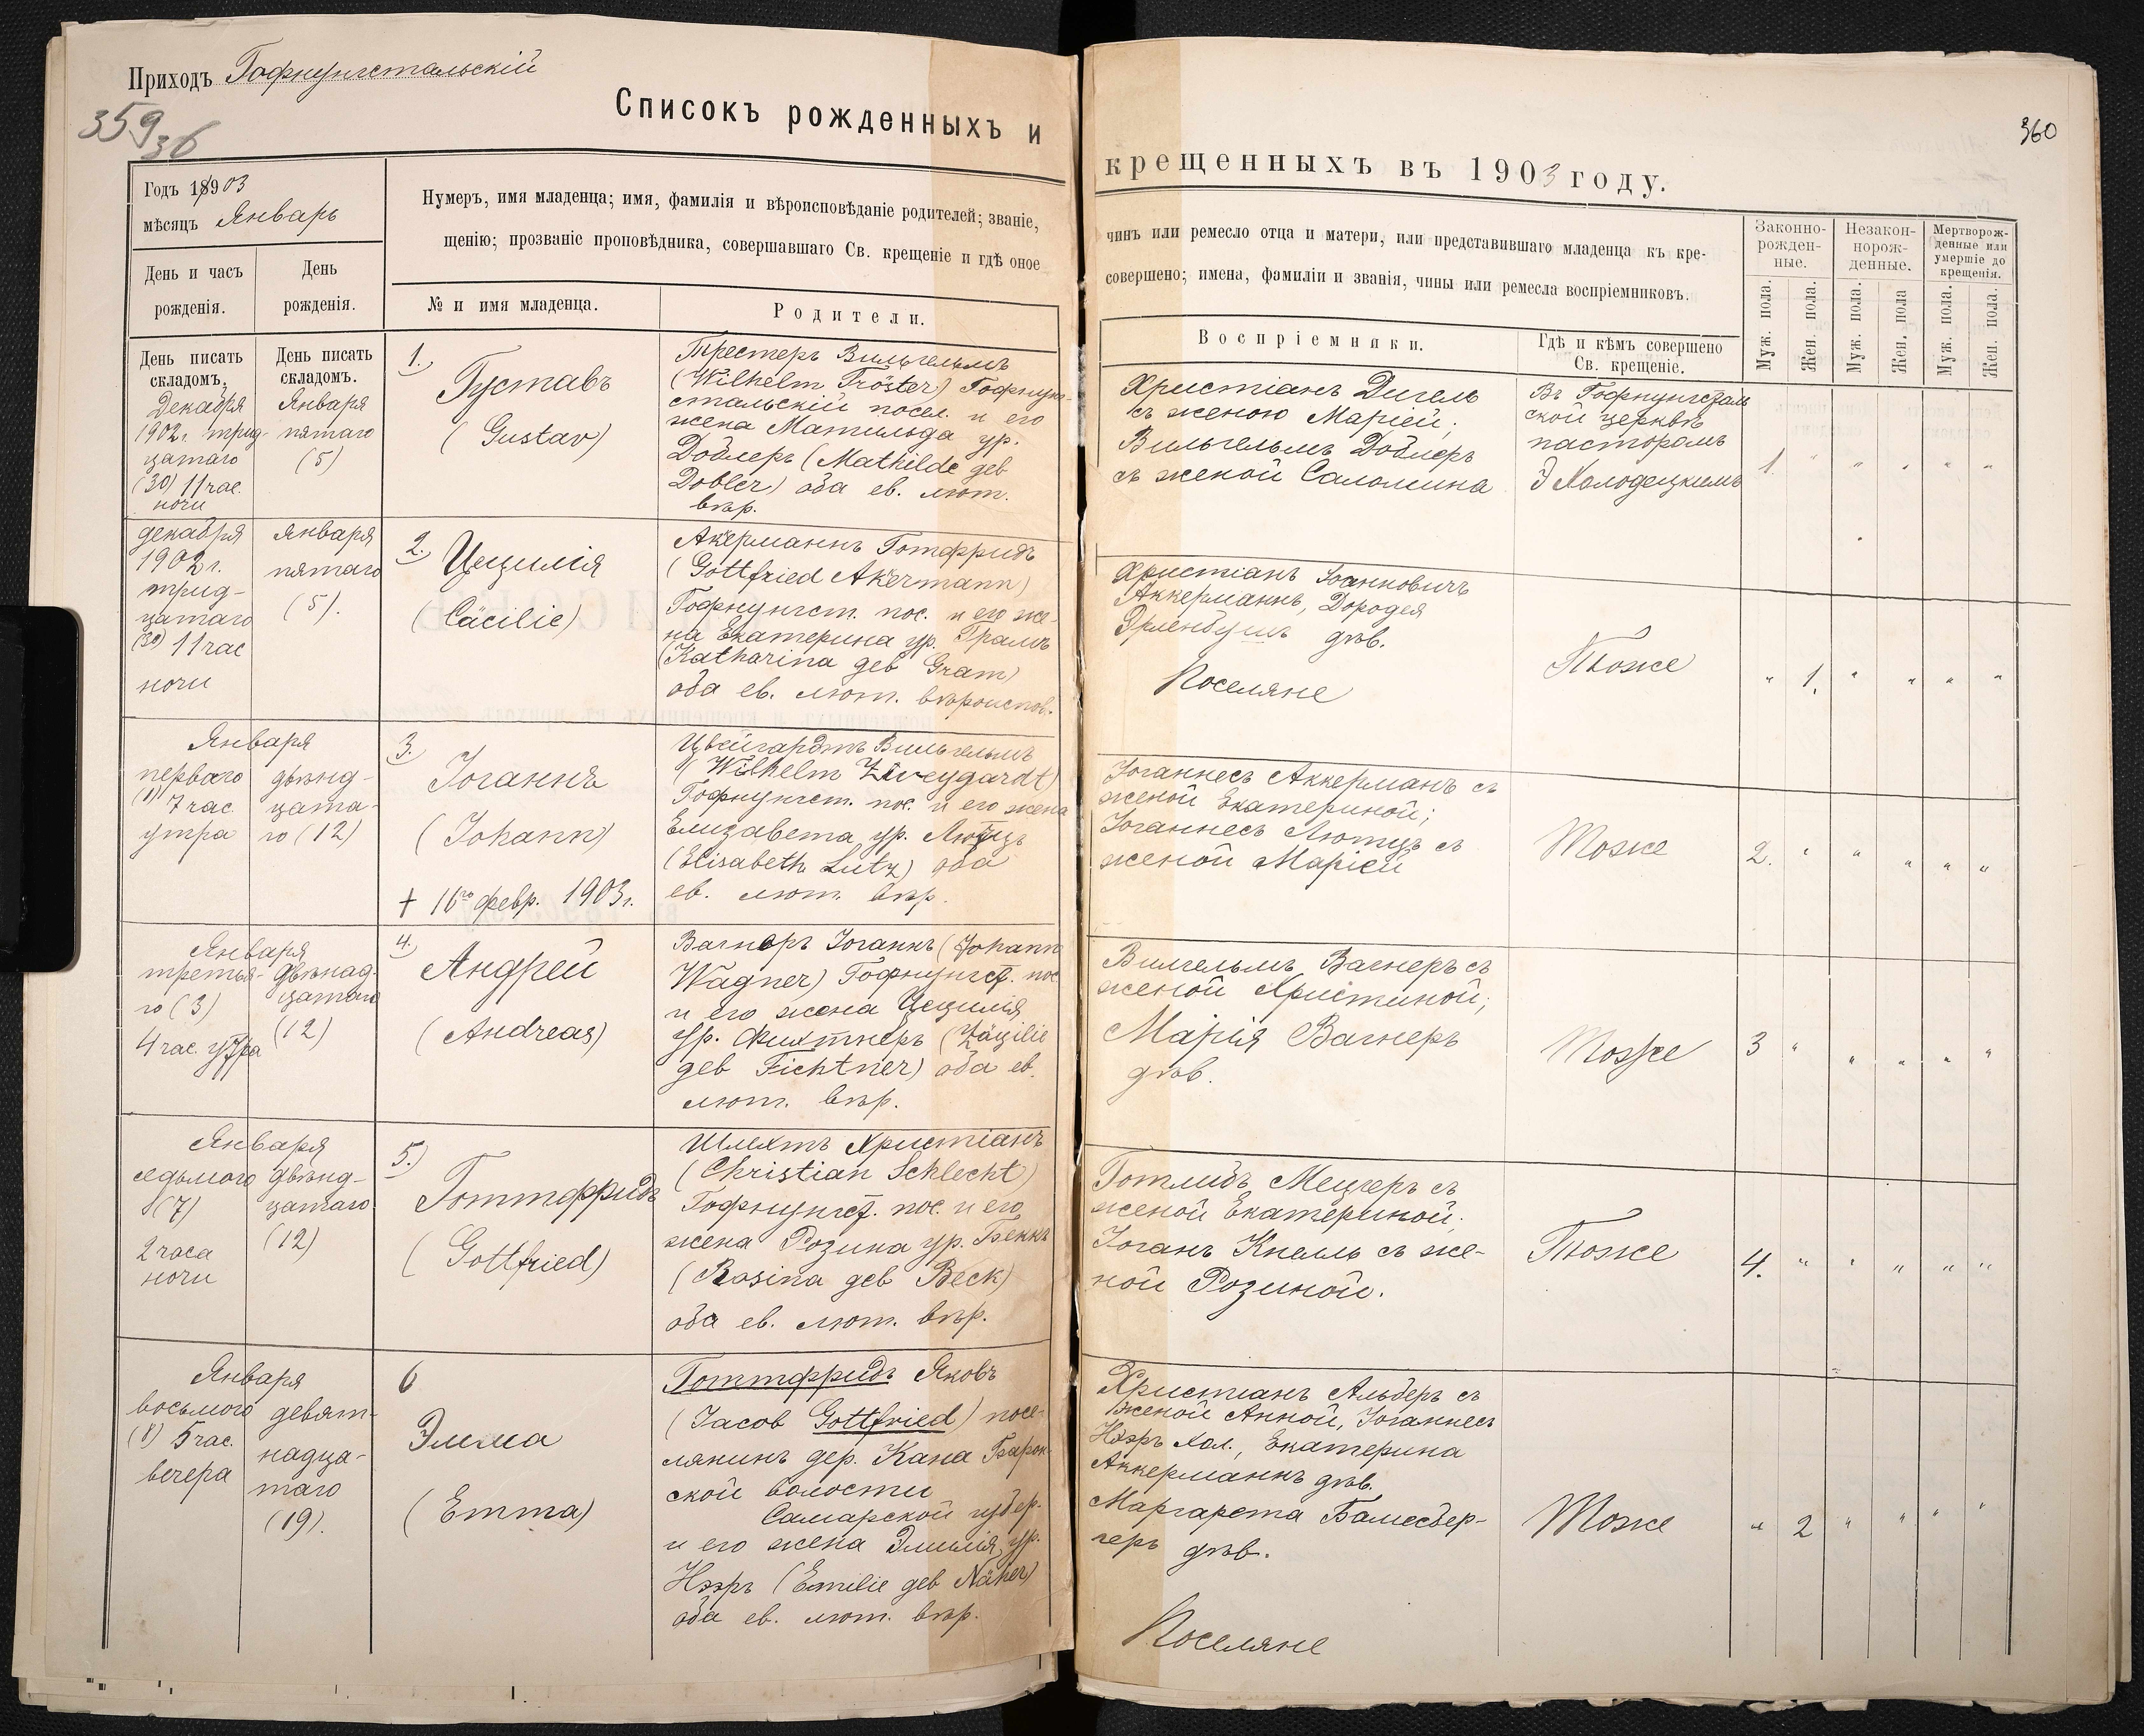 Приходъ Гофнунгстальскій
359
36
Списокъ рожденныхъ и
Годъ 18903
мѣсяцъ Январь
Нумеръ, имя младенца; имя, фамилія и вѣроисповѣданіе родителей; званіе,
щенію; прозваніе проповѣдника, совершавшаго Св. крещеніе и гдѣ оное
День и часъ
рожденія.
День
рожденія.
№ и имя младенца.
Родители.
День писать
складомъ.
День писать
складомъ.
Декабря
1902 г. трид-
цатаго
(30) 11 час.
ночи
Января
пятаго
(5)
1.
Густавъ
(Gustav)
Трестеръ Вильгельмъ
(Wilhelm Tröster) Гофнунг-
стальскій посел. и его
жена Матильда ур.
Доблеръ (Mathilde geb
Dobler) оба ев. лют.
вѣр.
декабря
1902 г.
трид-
цатаго
(30) 11 час
ночи
января
пятаго
(5).
2.
Цецилія
(Cäcilie)
Акерманнъ Готфридъ
(Gottfried Akermann)
Гофнунгст. пос. и его же-
на Екатерина ур. Грамъ
(Katharina geb Gram)
оба ев. лют. вѣроиспов.
Января
перваго
(1) 7 час
утра
двѣнад-
цата-
го (12)
3.
Іоганнъ
(Johann)
† 16го февр. 1903 г.
Цвейгардтъ Вильгельмъ
(Wilhelm Zweygardt)
Гофнунгст. пос. и его жена
Елизавета ур. Лютцъ
(Elisabeth Lutz) оба
ев. лют. вѣр.
Января
третья-
го (3)
4 час. утра
двѣнад-
цатаго
(12)
4.
Андрей
(Andreas)
Вагнеръ Іоганнъ (Johann
Wagner) Гофнунгст. пос
и его жена Цецилія
ур. Фихтнеръ (Zäzilie
geb Fichtner) оба ев.
лют. вѣр.
Января
седьмого
(7)
2 часа
ночи
двѣнад-
цатаго
(12)
5.)
Готтфридъ
(Gottfried)
Шлехтъ Христіанъ
(Christian Schlecht)
Гофнунгст. пос. и его
жена Розина ур. Беккъ
(Rosina geb Beck)
оба ев. лют. вѣр.
Января
восьмого
(8) 5 час.
вечера
девят-
надца-
таго
(19).
6
Эмма
(Emma)
Готтфридъ Яковъ
(Jacob Gottfried) посе-
лянинъ дер. Кана
ской волости
Самарской губер.
и его жена Эмилія ур.
Нээръ (Emilie geb Näher)
оба ев. лют. вѣр.
360
крещенныхъ въ 1903 году.
чинъ или ремесло отца и матери, или представившаго младенца къ кре-
совершено; имена, фамиліи и званія, чины или ремесла воспріемниковъ.
Воспріемники.
Гдѣ и кѣмъ совершено
Св. крещеніе.
Законно-
рожден-
ные.
Незакон-
норож-
денные.
Мертворож-
денные или
умершіе до
крещенія.
Муж. пола.
Жен. пола.
Муж. пола.
Жен. пола
Муж. пола.
Жен. пола.
Христіанъ Дигель
съ женою Маріей;
Вильгельмъ Доблеръ
съ женой Саломина
Въ Гофнунгсталь
ской церкви
пасторомъ
Э Холодецкимъ
1. " " " " "
Христіанъ Іоанновичъ
Аккерманнъ, Доротея
дѣв.
Поселяне
Тоже
" 1. " " " "
Іоганнесъ Аккерманъ съ
женой Екатериной;
Іоганнесъ Лютцъ съ
женой Маріей
Тоже
2. " " " " "
Вилгельмъ Вагнеръ съ
женой Христиной;
Марія Вагнеръ
дѣв.
Тоже
3 " " " " "
Готлибъ Мецгеръ съ
женой Екатериной;
Іоганъ Кнелль съ же-
ной Розиной.
Тоже
4. " " " " "
Христіанъ Альберъ съ
женой Анной, Іоганнесъ
Нээръ хол., Екатерина
Аккерманнъ дѣв.
Маргарета Бамесбер-
геръ дѣв.
Поселяне
Тоже
" 2 " " " "